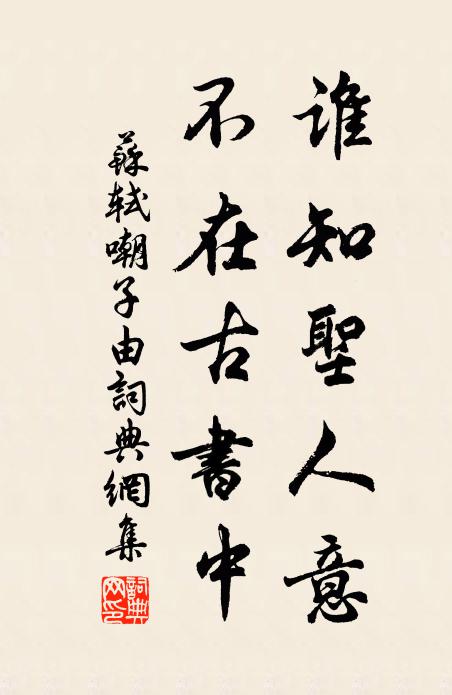 誰知聖人意
不在古書中
蘇軾嘲子由詞典網集
詞典網印